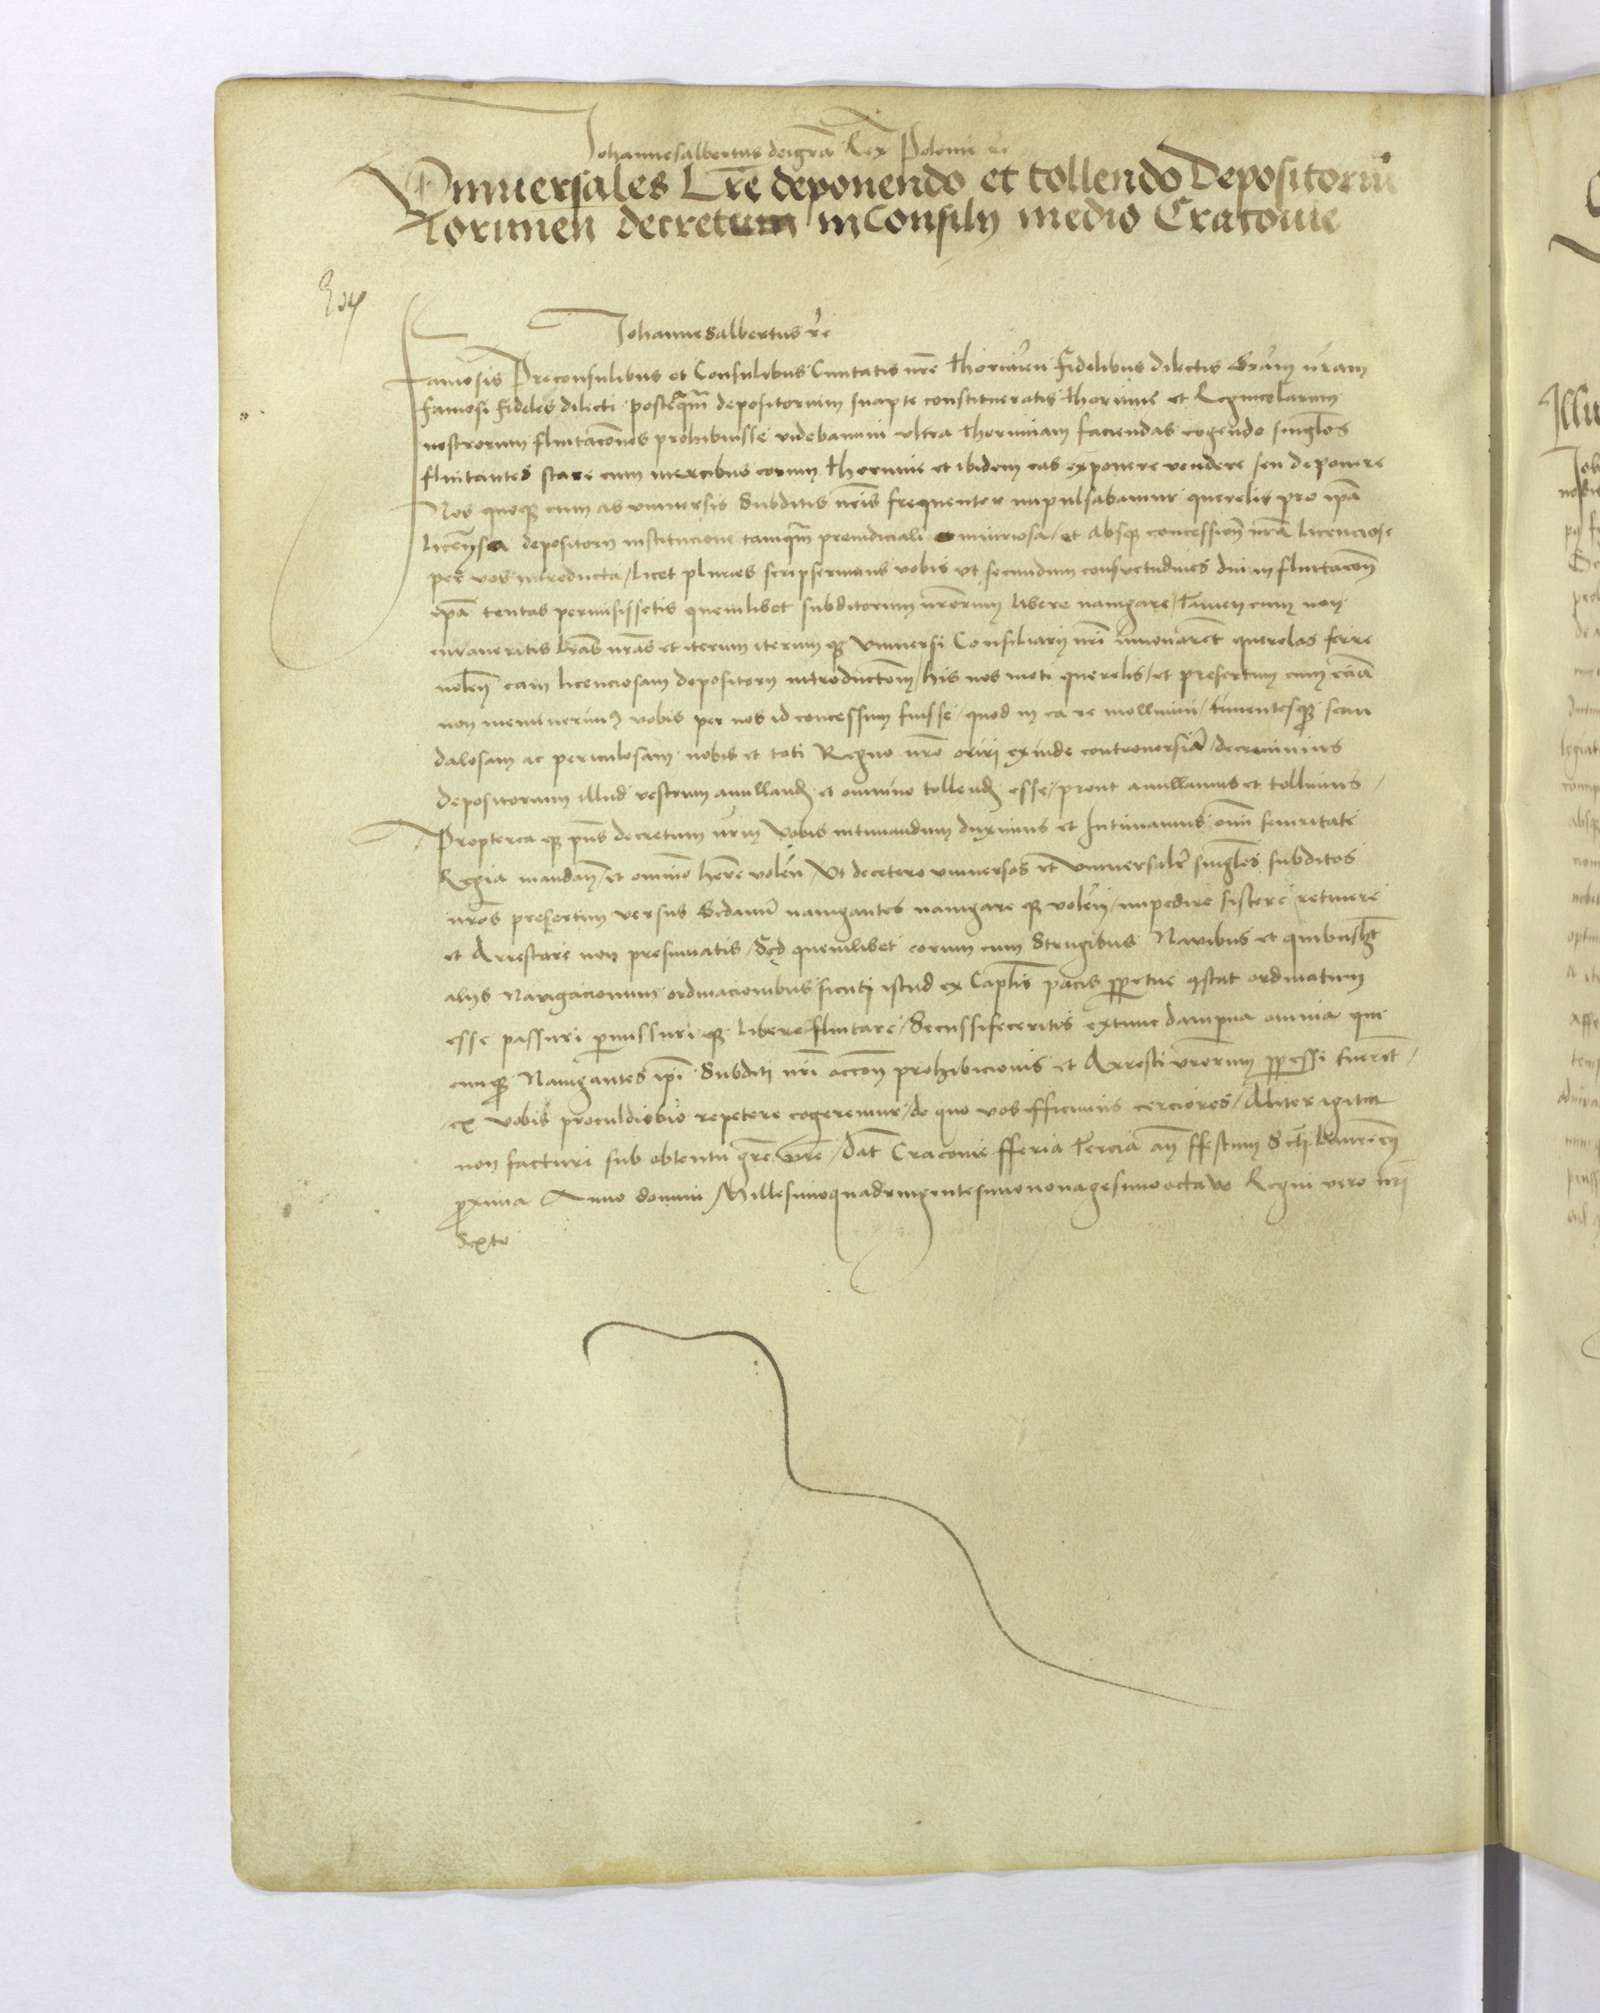 Johannesalbertus deigrã Rex Polonie rc̃
Vniuersales Lr̃e deponendo et tollendo Depositoriũ
Torunen̄ decretum in Consilij medio Cracouie
Johannesalbertus rc̃
Famosis Preconsulibus et Consulibus Ciuitatis nr̃e Thorunen̄ Fidelibus dilectis Grãm nr̃am
Famosi Fideles dilecti postq̃m depositorium suapte constitueratis Thorunie et Regnicolarum
nostrorum fluitacões prohibuisse videbamini vltra Thoruniam faciendas cogendo singłos
fluitantes stare cum mercibus eorum Thorunie et ibidem eas exponere vendere seu deponere
Nos quoqz cum ab vniuersis Subditis nr̃is frequenter impulsabamur querelis pro ipã
depositorij institucione tamq̃m preiudiciali iniuriosa / et absqz concessionẽ nrã licenciose
per vos introducta / licet pluries scripserimus vobis vt secundum consuetudines diu in fluitacoẽ
ipã tentas permisissetis quemlibet subditorum nrõrum libere nauigare / Tamen cum non
curaueritis Lrãs nrãs et iterum iterum qz vniuersi Consiliarij nrĩ innouarẽt querelas ferre
nolen̄ eam licenciosam depositorij introductoẽm / his nos moti querelis / et presertim cum eciã
non meminerim9 vobis per nos id concessum fuisse / quod in ea re mollimini / timentesqz scan
dalosam ac periculosam nobis et toti Regno nrõ oriri exinde controuersiã / decreuimus
Depositorium illud vestrum anullandũ et omnino tollendũ esse / prout anullamus et tollimus /
Propterea qz pñs decretum nrũm Vobis intimandum duximus et Intimamus om̃i seueritate
Regia mandan̄ / et omnino hẽre volen̄ / Vt decetero vniuersos et vniuersalr̃ singłos subditos
nrõs presertim versus Gdanũ nauigantes nauigare qz volen̄ / impedire sistere retinere
et Arrestare non presumatis / Sed quemlibet eorum cum Strugibus Nauibus et quibuslibet
alijs Nauigacionum ordinacionibus sicuti istud ex Capłis pacis ppetue 9stat ordinatum
esse passuri pmissuri qz libere fluitare / Secussifeceritis extunc dampna omnia que
cunqz Nauigantes ipĩ Subditi nrĩ occoẽ prohibicionis et Arresti vrõrum ppessi fuerint /
ex vobis proculdubio repetere cogeremur / de quo vos efficimus cerciores / Aliter igitur
non facturi sub obtentu grẽ nrẽ / Dat̃ Cracouie fferia Tercia an̄ ffestum Scti Laurencij
proxima Anno domini Millesimoquadringentesimononagesimooctauo Regni vero nrĩ
Sexto